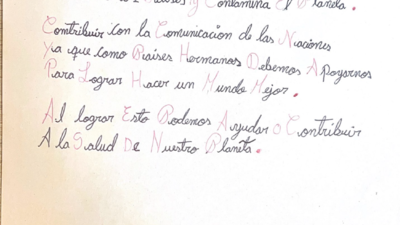 Países y Contamina El Planeta.
Contribuir con la Comunicacion de las Naciones
Ya que como Paises Hermanos Debemos Apoyarnos
Para Lograr Hacer un Mundo Mejor.
Al lograr Esto Podemos Ayudar o Contribuir
A la Salud De Nuestro Planeta.